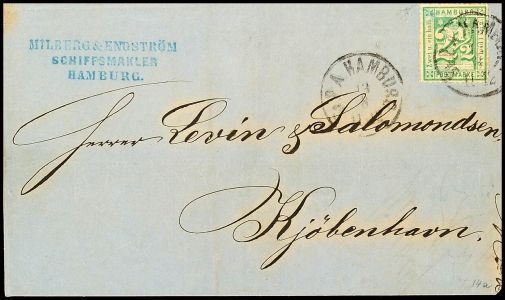 MILBERG & ENGSTRÖM
SCHIFFSMAKLER
HAMBURG.
HAMBURG
2½
POSTMARKE
HAMBURG
Herren Levin & Salomondsen.
Kjöbenhavn.
14a